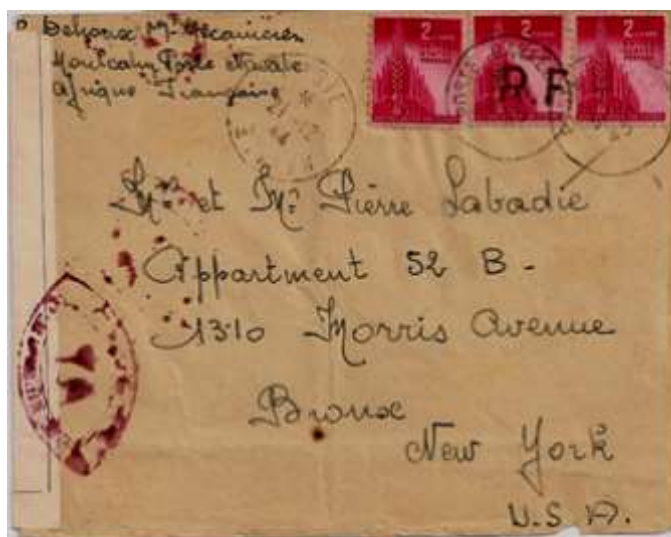 Mécanicien
Montcalm Poste Navale
Afrique Française
2 CENTS
2
2
R.F
Mme et Mr Pierre Labadie
Appartment 52 B-
1310 Morris Avenue
Bronx
New York
U.S.A.